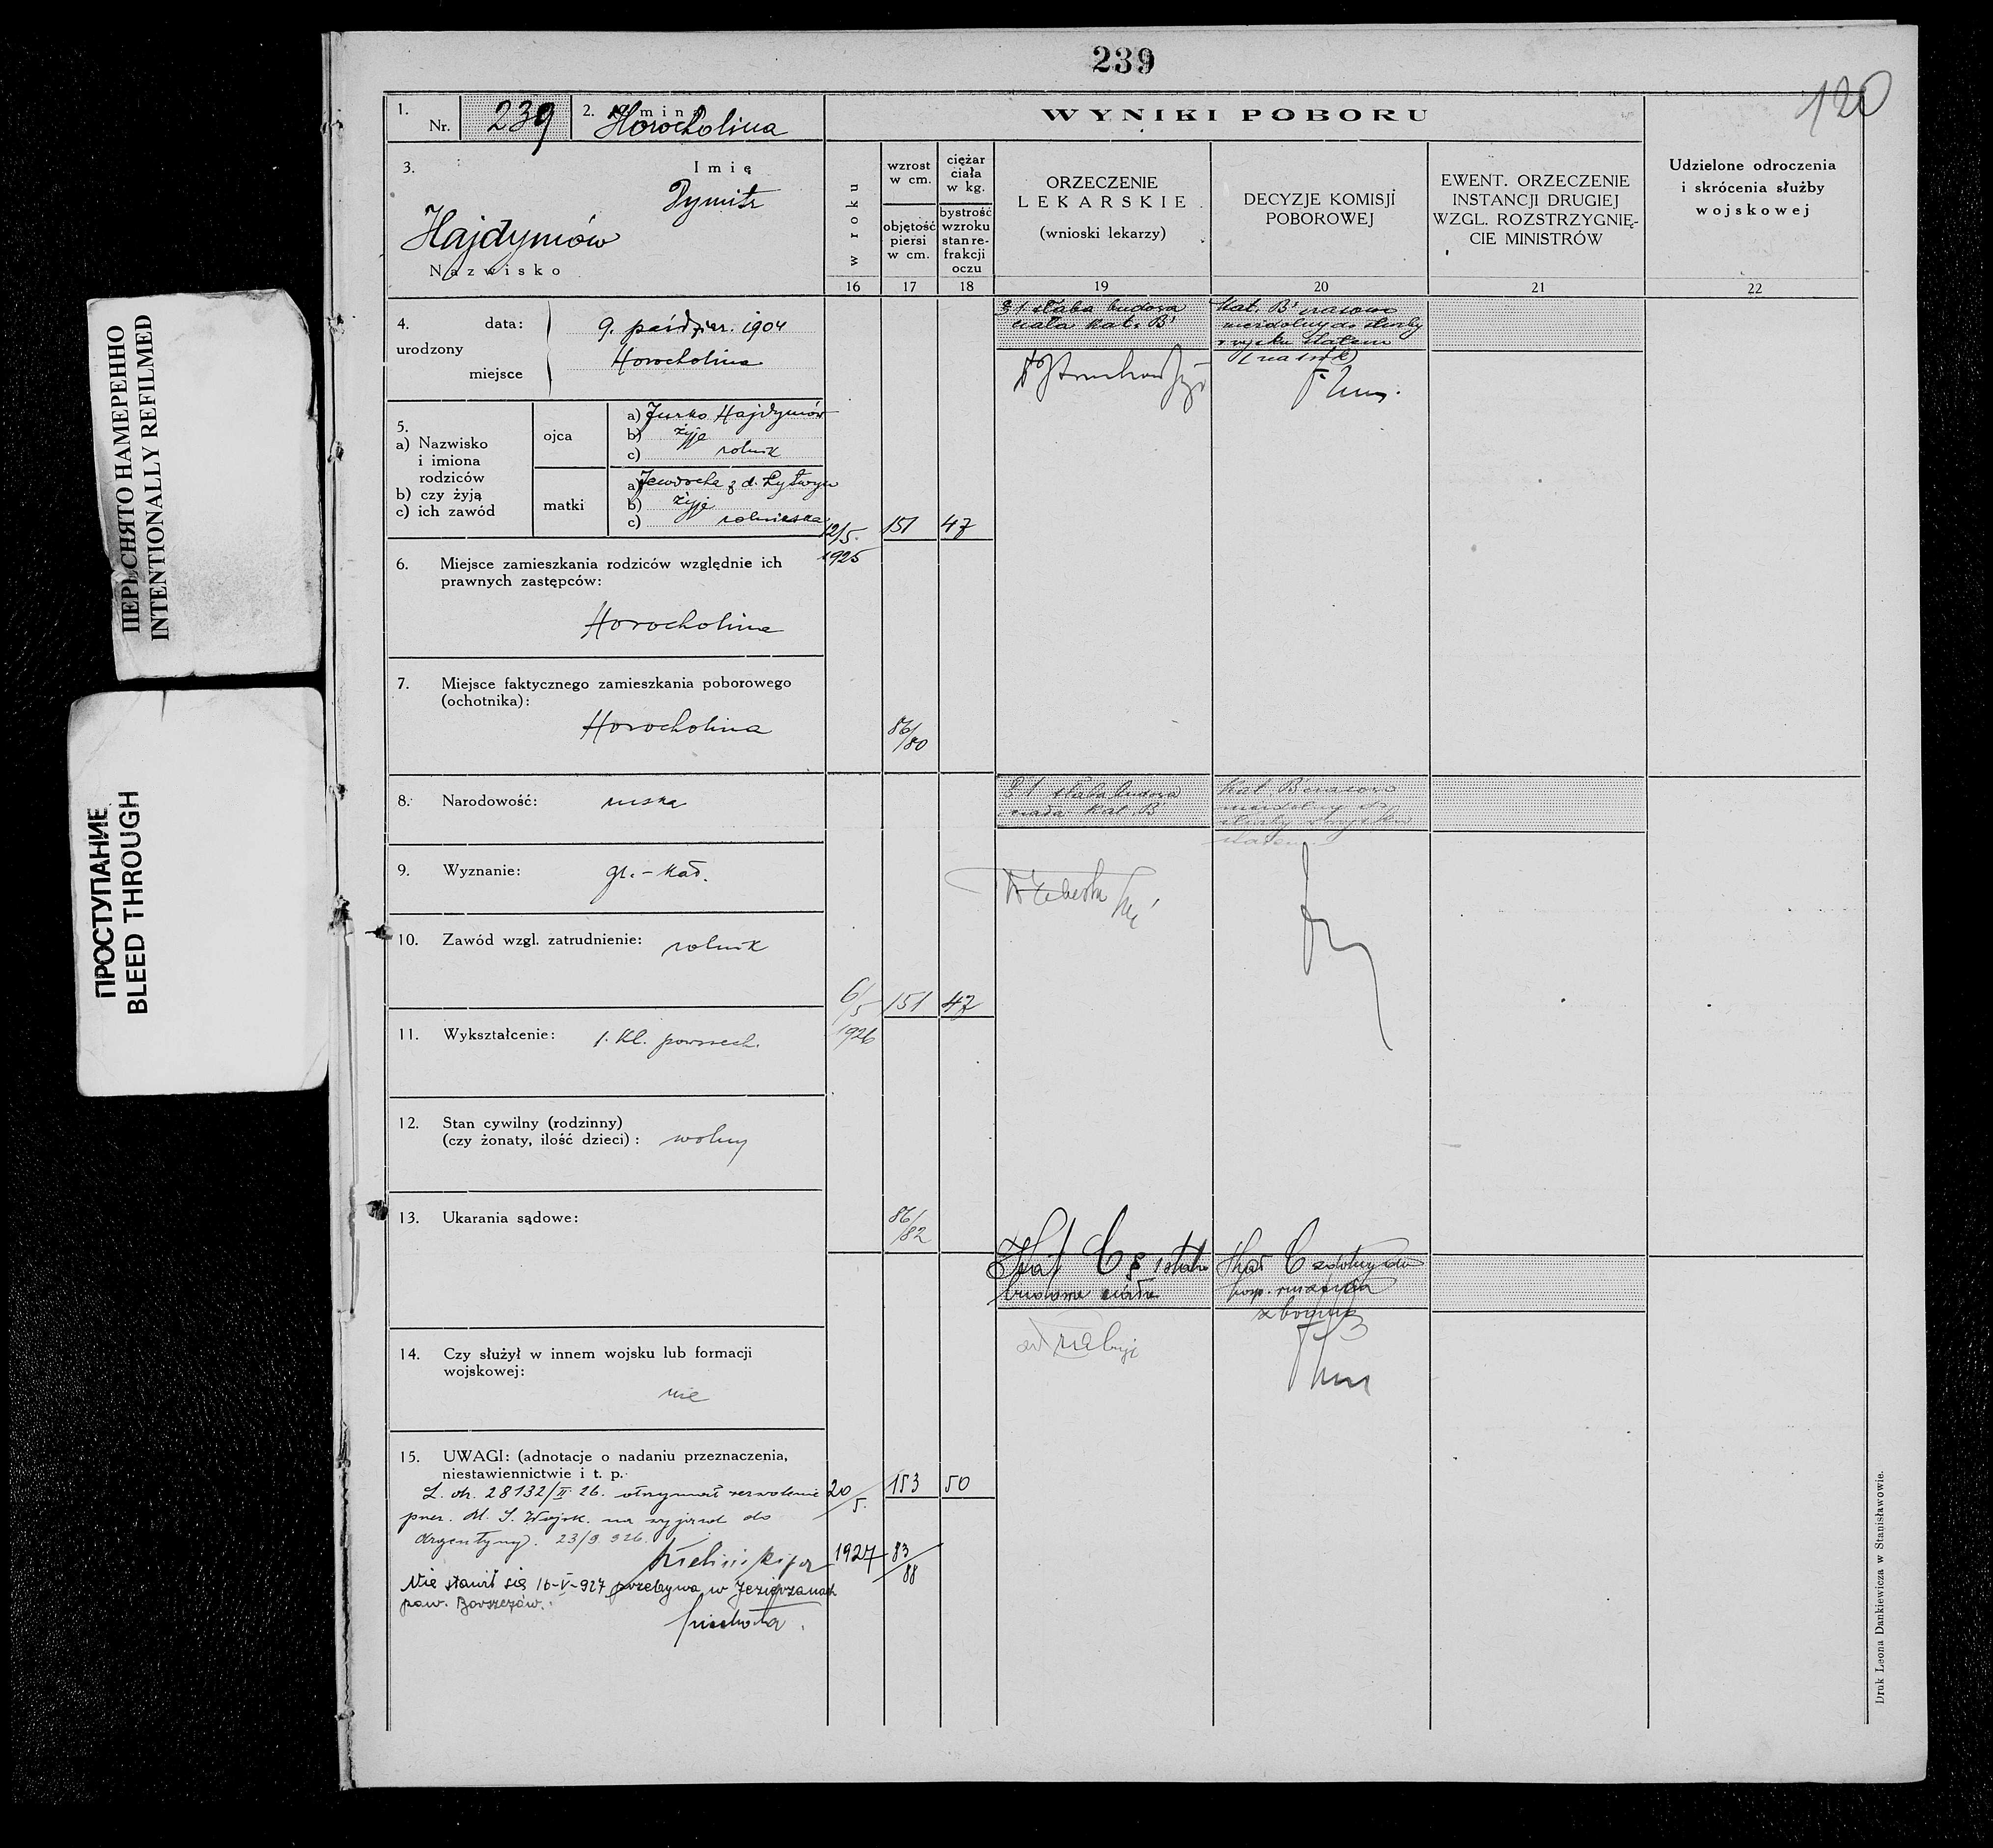 239
120
1.
Nr. 239
2. Gmina
Horocholina
WYNIKI POBORU
3.
Imię
Dymitr
Hajdymów
Nazwisko
w roku
wzrost
w cm.
objętość
piersi
w cm.
ciężar
ciała
w kg.
bystrość
wzroku
stan re-
frakcji
oczu
ORZECZENIE
LEKARSKIE
(wnioski lekarzy)
DECYZJE KOMISJI
POBOROWEJ
EWENT. ORZECZENIE
INSTANCJI DRUGIEJ
WZGL. ROZSTRZYGNIĘ-
CIE MINISTRÓW
Udzielone odroczenia
i skrócenia służby
wojskowej
16 17 18 19 20 21 22
4. data: 9. paździer. 1904
urodzony
miejsce Horocholina
§ 1 słaba budowa
ciała kat. B
Kat. B czasowo
niezdolny do służby
w wojsku stałem
(na 1 rok)
5.
a) Nazwisko
i imiona
rodziców
b) czy żyją
c) ich zawód
ojca
a) Jurko Hajdymów
b) żyje
c) rolnik
matki
a) Jewdocha z d. Łytwyn
b) żyje
c) rolniczka
12/5. 151 47
1925
6. Miejsce zamieszkania rodziców względnie ich
prawnych zastępców:
Horocholina
7. Miejsce faktycznego zamieszkania poborowego
(ochotnika):
Horocholina
86/80
8. Narodowość: ruska
§ 1 słaba budowa
ciała Kat. B
Kat. B czasowo
niezdolny do
służby w wojsku
stałem
9. Wyznanie: gr.-kat.
10. Zawód wzgl. zatrudnienie: rolnik
6/5 151 47
1926
11. Wykształcenie: 1. kl. powszech.
12. Stan cywilny (rodzinny)
(czy żonaty, ilość dzieci): wolny
13. Ukarania sądowe:
86/82
Kat C § 1 słaba
budowa ciała
Kat C zdolny do
posp. ruszenia
z bronią
14. Czy służył w innem wojsku lub formacji
wojskowej:
nie
15. UWAGI: (adnotacje o nadaniu przeznaczenia,
niestawiennictwie i t. p.
28132/II 26. otrzymał zezwolenie
M. S. Wojsk. na wyjazd do
Argentyny. 23/9 926.
20/5. 153 50
1927 83/88
Nie stawił się 16-V-927 przebywa w Jezierzanach
pow. Borszczów.
Druk Leona Dankiewicza w Stanisławowie.
ПЕРЕСНЯТО НАМЕРЕННО
INTENTIONALLY REFILMED
ПРОСТУПАНИЕ
BLEED THROUGH